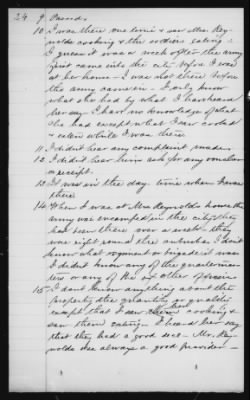 24 9 Friends.
10 I was there one time & saw Mrs. Rey-
nolds cooking & the soldiers eating -
I guess it was a week after the army
first came into the city before I was
at her house - I was not there before
the army came in - I only know
what she had by what I have heard
her say. I have no knowledge of what
she had except what I saw cooked
& eaten while I was there.
11 I did not hear any complaint made.
12 I did not hear him ask for any voucher
or receipt.
13 It was in the day time when I was
there
14 When I was at Mrs. Reynolds house the
army was encamped in the city, they
had been there over a week - they
was right round the suburbs I don't
know what regiment or brigade it was
I didn't know any of the quartermas-
ters or any of the other officers
15 I don't know anything about the
property the quantity or quality
except that I saw them cooking &
saw them eating - I heard her say
that they had a good deal - Mr. Rey-
nolds was always a good provider -